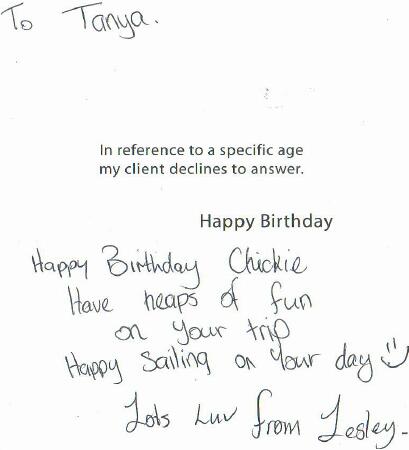 To Tanya.
In reference to a specific age
my client declines to answer.
Happy Birthday
Happy Birthday Chickie
Have heaps of fun
on your trip
Happy Sailing on Your day
Lots Luv from Lesley-